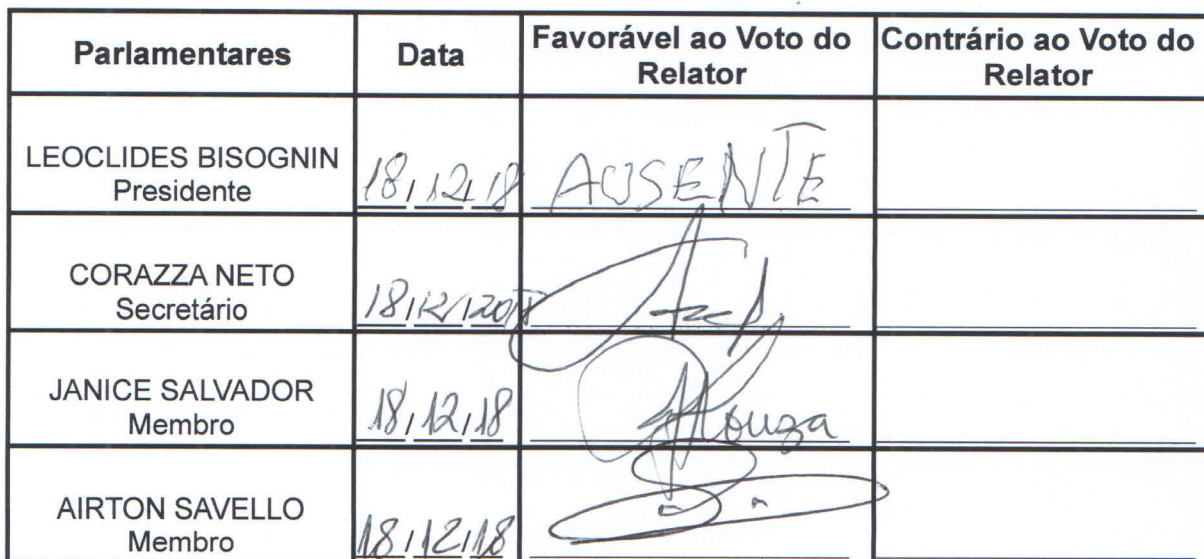 Parlamentares Data Favorável ao Voto do Relator Contrário ao Voto do Relator
LEOCLIDES BISOGNIN
Presidente 18/12/18 AUSENTE
CORAZZA NETO
Secretário 18/12/2018
JANICE SALVADOR
Membro 18/12/18 Souza
AIRTON SAVELLO
Membro 18/12/18